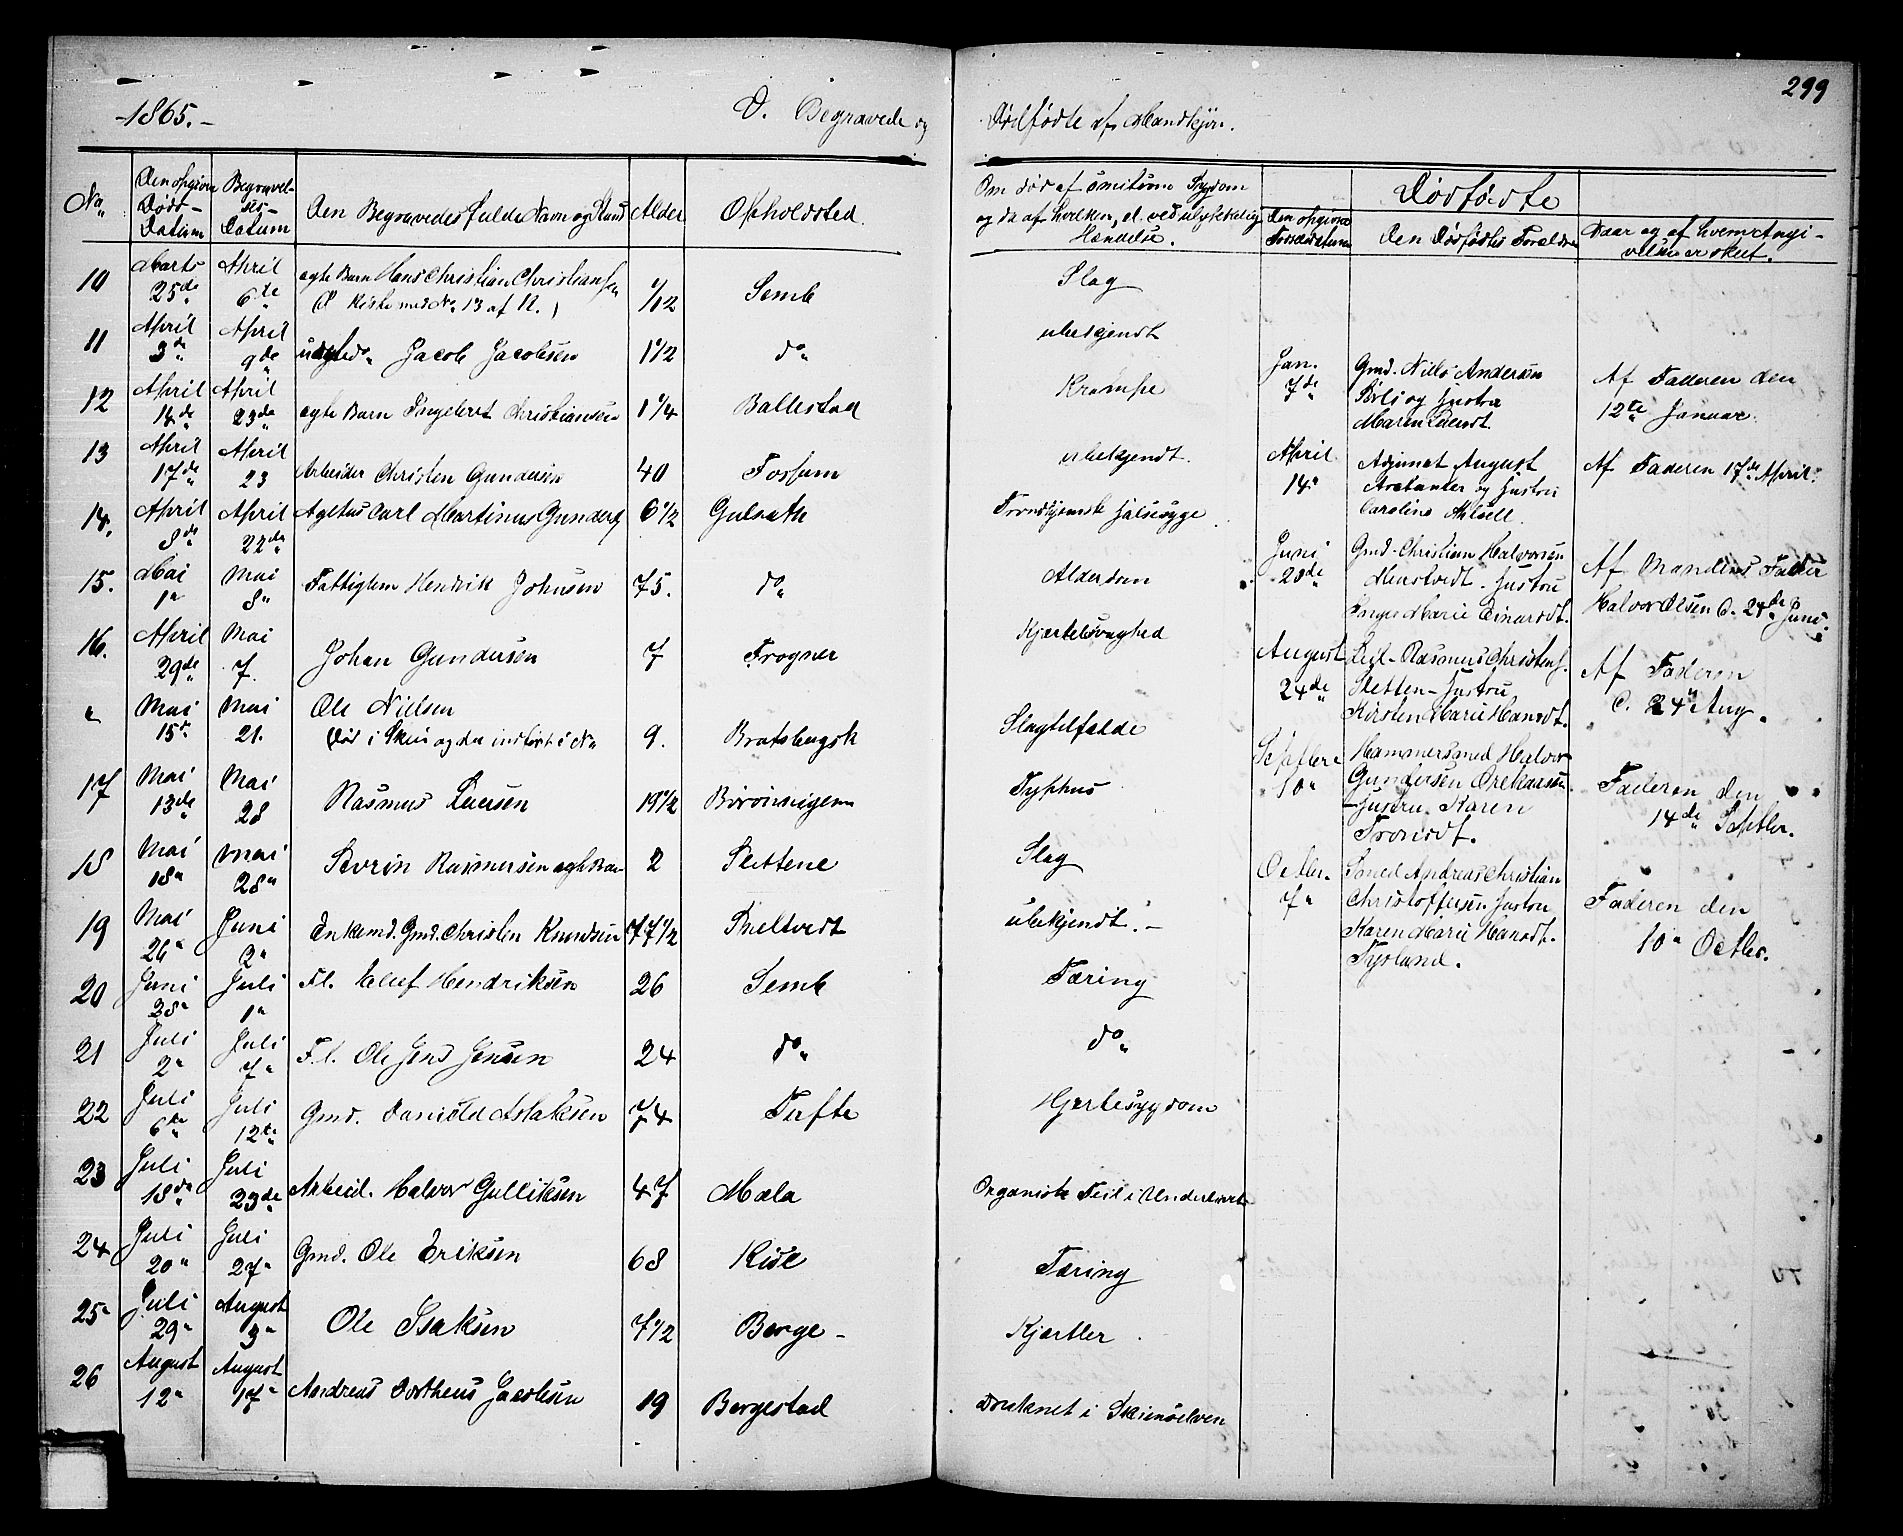 299
-1865.-
D. Begravede og Dødfødte af Mandkjøn.
No
Den opgivne Døds- Datum
Begravel- ses- Datum
Den Begravedes fulde Navn og Stand
Alder
Opholdsted.
Om død af smitsom Sygdom
og da af hvilken, el. ved ulykkelig
Hændelse.
Dødfødte
Den opgivne
Den Dødfødtes Forældre
Naar og af hvem Angi-
velsen er skeet.
10 Marts 25de April 6te ægte Barn Hans Christian Christiansen 1/12 Semb Slag
(I Kiste med No 13 af K.)
11 April 3de April 9de uægte do Jacob Jacobsen 1 1/2 do ubekjendt
12 April 14de April 23de ægte Barn Ingebret Christiansen 1 1/4 Ballestad Krampe
13 April 17de April 23 Arbeider Christen Gundersen 40 Fossum ubekjendt.
14. April 8de April 22de Carl Martinus Gunders 6 1/2 Gulseth Trondhjemsk Halssyge
15. Mai 1 Mai 8 Fattiglem Hendrik Johnsen 75. do Alderdom
16. April 29de Mai 7. Johan Gundersen 7 Frogner Kjertelsvaghed
" Mai 15 Mai 21. Ole Nielsen 9. Bratsbergsk Slagtilfælde
Død i Skien og der indført i No
17 Mai 13de Mai 28 Rasmus Larsen 19 1/2 Typhus
18 Mai 18 Mai 28 Severin Rasmusen ægte Barn 2 Slettene Slag
19 Mai 26 Juni 2 Enkemd. Gmd. Christen Knudsen 77 1/2 Smeltvedt ubekjendt.-
20 Juni 28 Juli 1 F.l. Eluf Hendriksen 26 Semb Tæring
21 Juli 2 Juli 7 F.l. Ole Jens Jensen 24 do do
22 Juli 6te Juli 12te Gmd. Daniel Aslaksen 74 Tufte Hjertesygdom
23 Juli 18de Juli 23de Arbeid. Halvor Gulliksen 47 Mæla Organisk Feil i Underlivet
24 Juli 20 Juli 27 Gmd. Ole Eriksen 68 Kise Tæring
25 Juli 29 August 3 Ole Isaksen 7 1/2 Borge - Kjertler.
26 August 12 August 17 Andreas Dortheus Jacobsen 19 Borgestad Druknet i Skienselven
Jan. 7de
Gmd. Nills Andersen
Bøle og Hustru
Maren Larsdt.
Af Faderen den
12te Januar.
April 14
Adjunct August
Arctander og Hustru
Caroline
Af Faderen 17de April.
Juni 20de
Gmd. Christian Halvorsen
Menstvedt. Hustru
Inger Marie Einarsdt.
Af Mandens Fader
Halvor Olsen d. 24de Juni.
August 24de
Leil- Rasmus Christens.
Sletten - Hustru
Kirsten Marie Hansdt.
Af Faderen
d. 24 Aug.
Septbr 10
Hammersmed Halvor
Gundersen
Hustru Karen
Tronsdt.
Faderen den
14de Septbr.
Octbr. 7
Andreas Christian
Christoffersen Hustru
Karen Marie Hansdt.
Fysland.
Faderen den
10 Octbr.